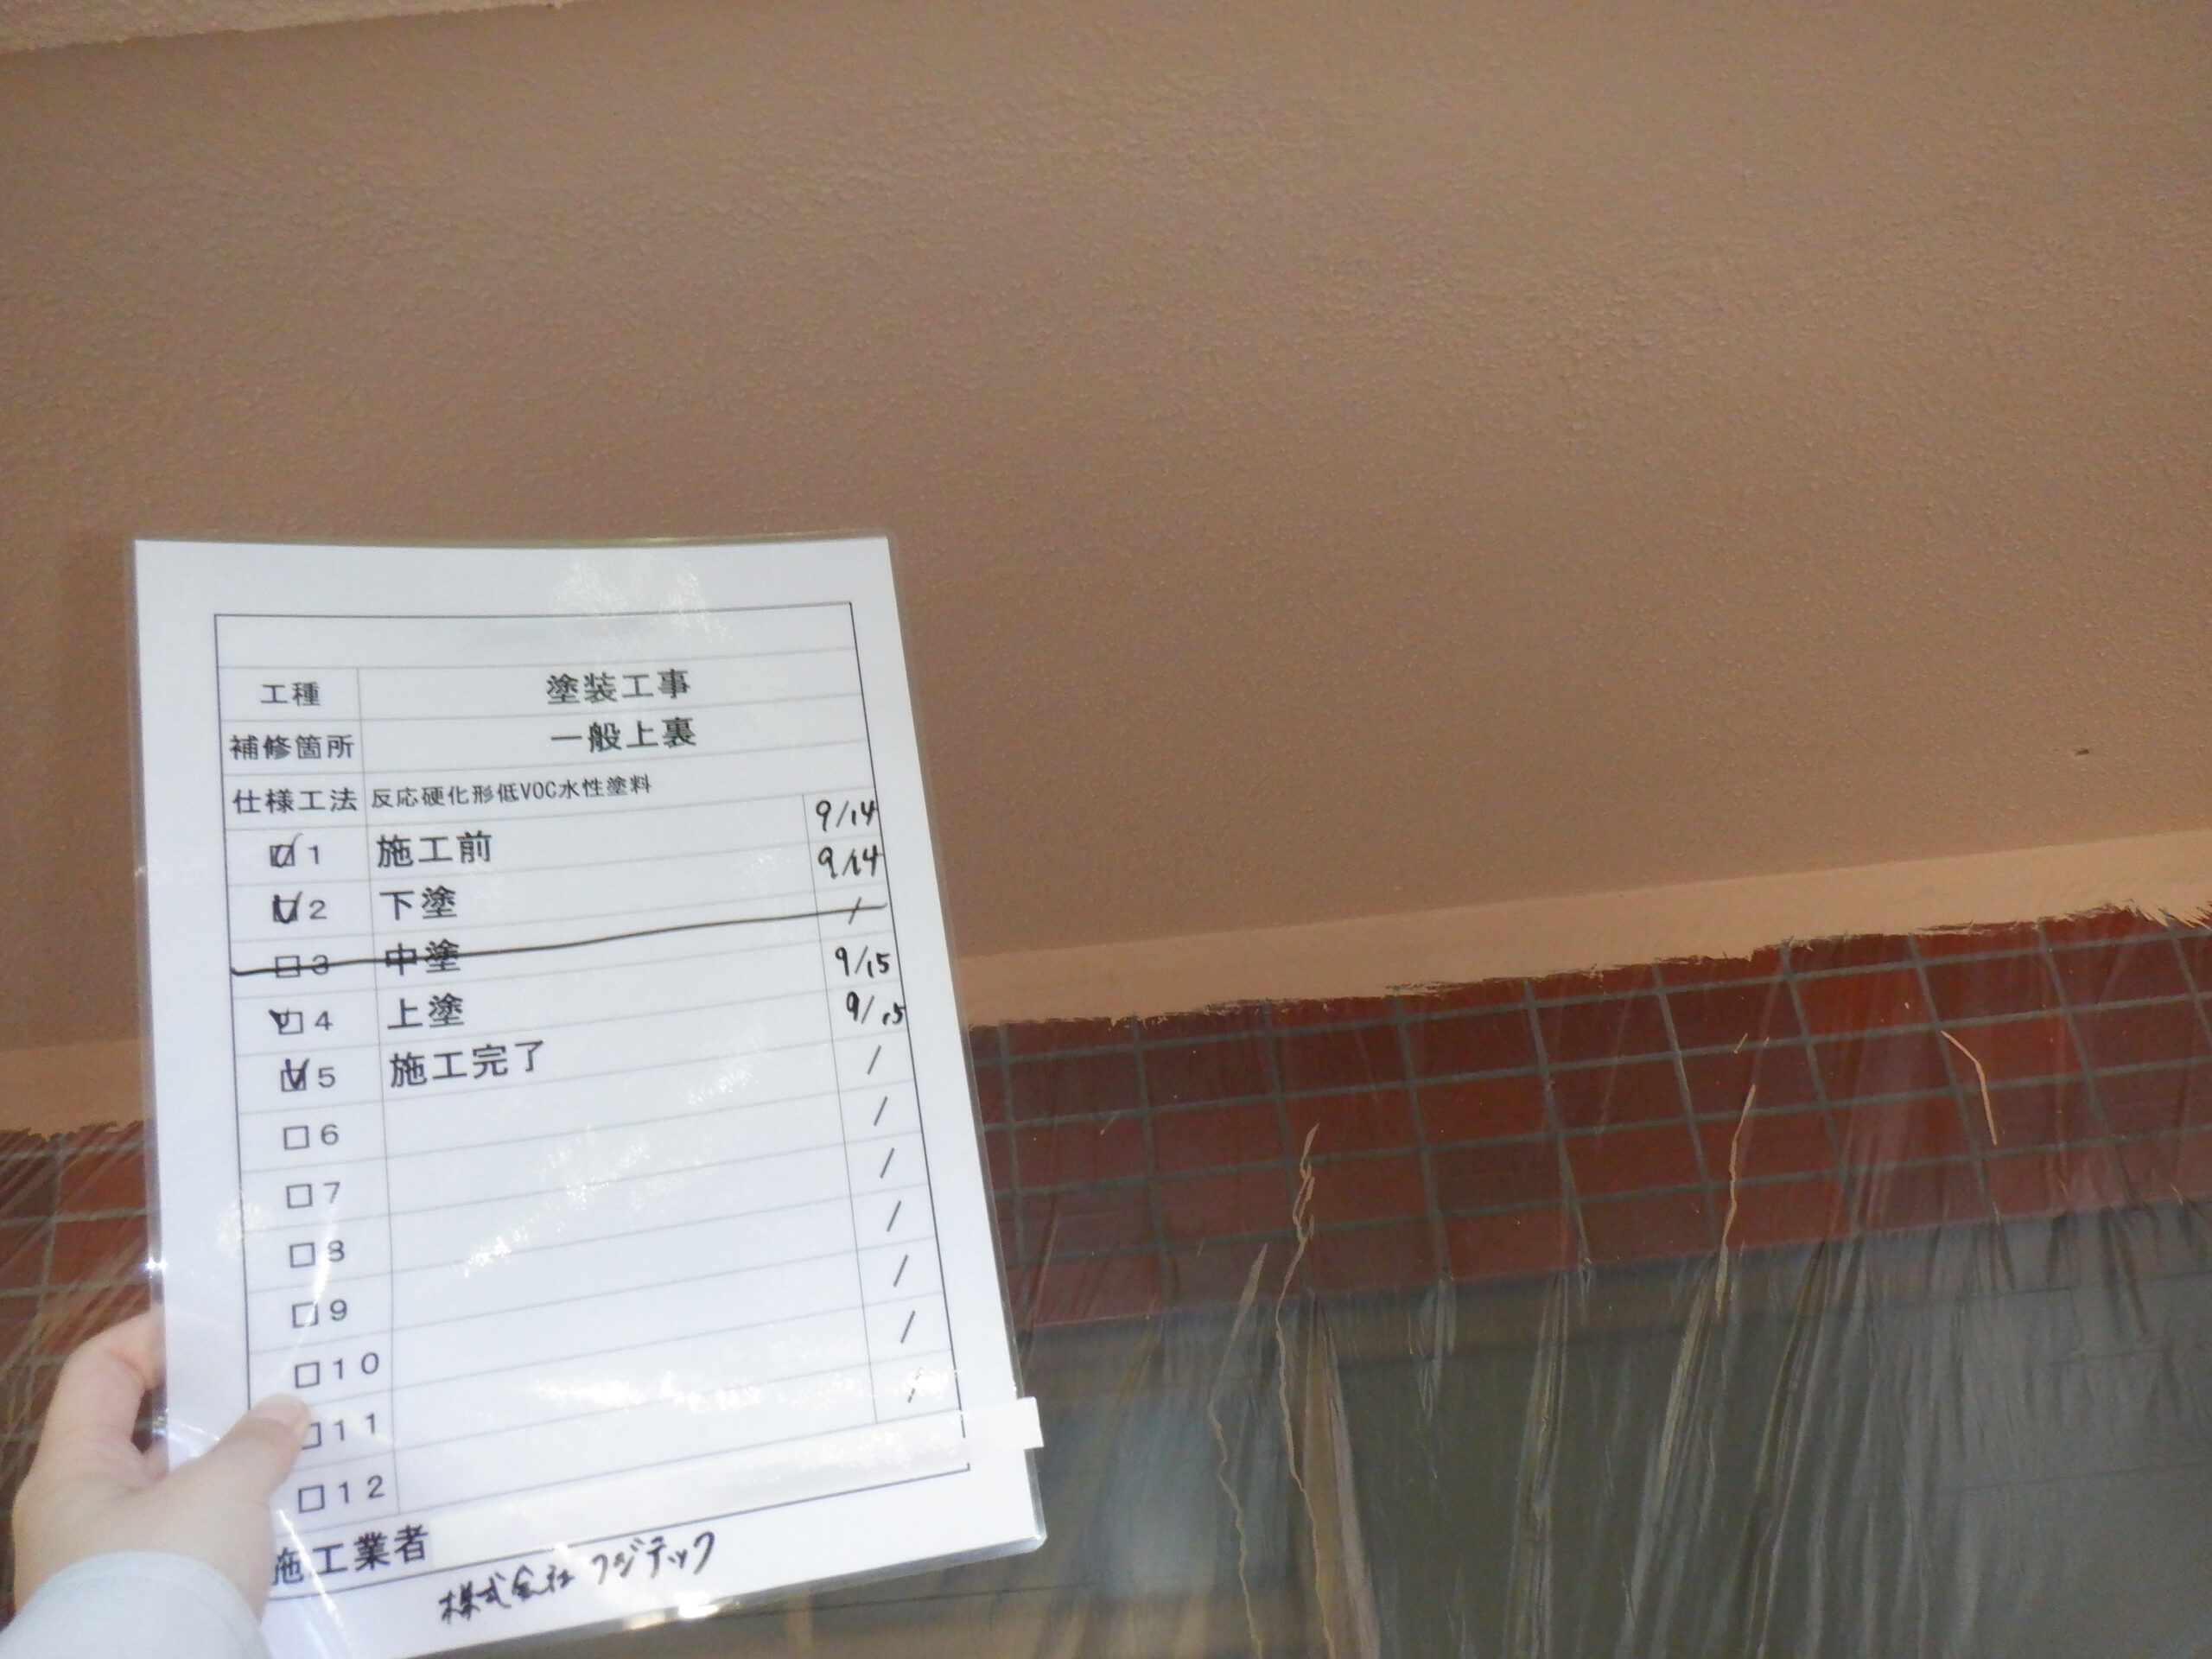 工種 塗装工事
補修箇所 一般上裏
仕様工法 反応硬化形低VOC水性塗料
☑1 施工前 9/14
☑2 下塗 9/14
□3 中塗 /
☑4 上塗 9/15
☑5 施工完了 9/15
□6 /
□7 /
□8 /
□9 /
□10 /
□11 /
□12 /
施工業者 株式会社フジテック